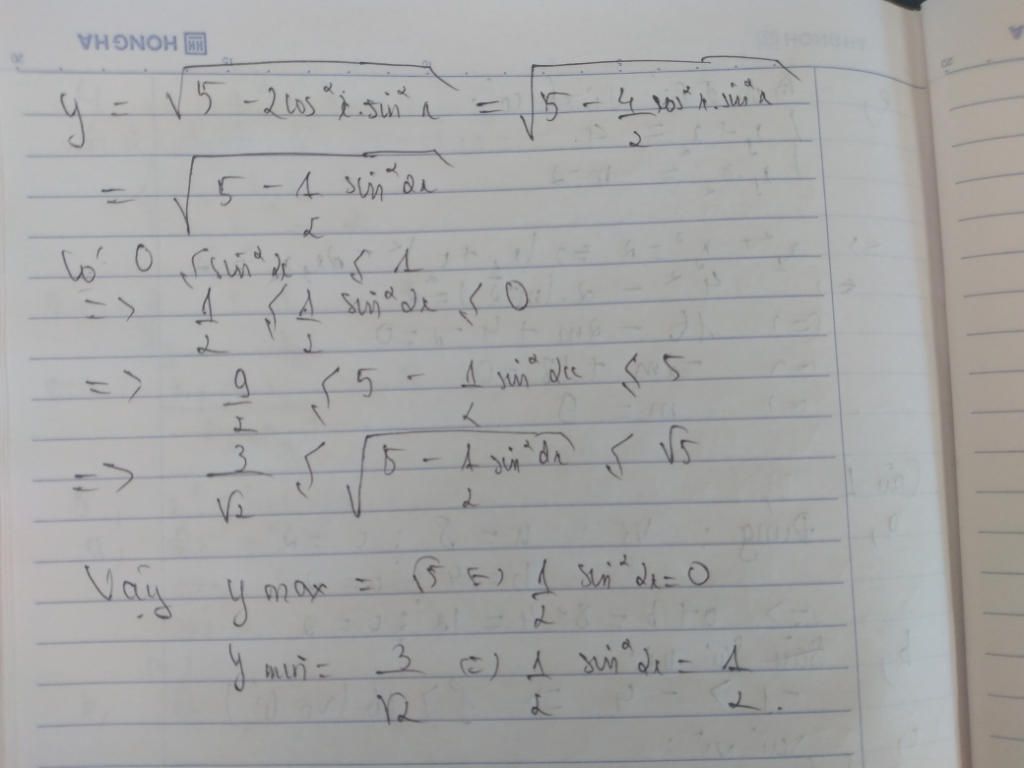 HONG HA
y = √(5 - 2cos²x.sin²x) = √(5 - 4/2 cos²x.sin²x)
= √(5 - 1/2 sin²2x)
Có 0 ≤ sin²2x ≤ 1
=> 1/2 ≤ 1/2 sin²2x ≤ 0
=> 9/2 ≤ 5 - 1/2 sin²2x ≤ 5
=> 3/√2 ≤ √(5 - 1/2 sin²2x) ≤ √5
Vậy y max = √5 <=> 1/2 sin²2x = 0
y min = 3/√2 <=> 1/2 sin²2x = 1/2.